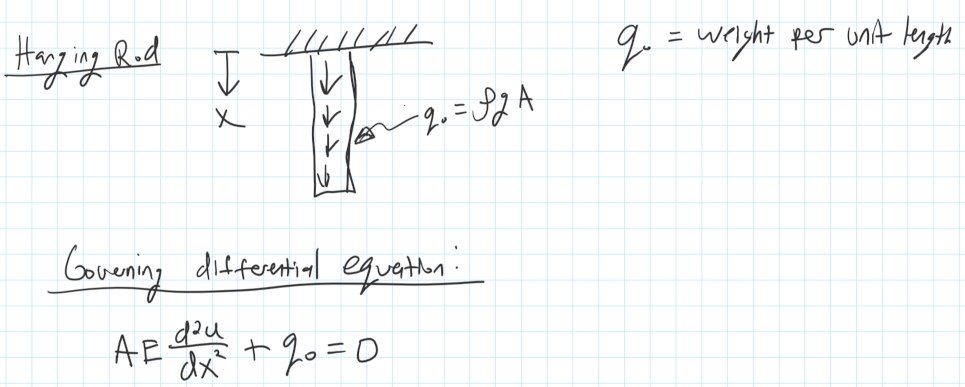 Hanging Rod
x
q₀ = weight per unit length
q₀ = ρgA
Governing differential equation:
AE d²u/dx² + q₀ = 0